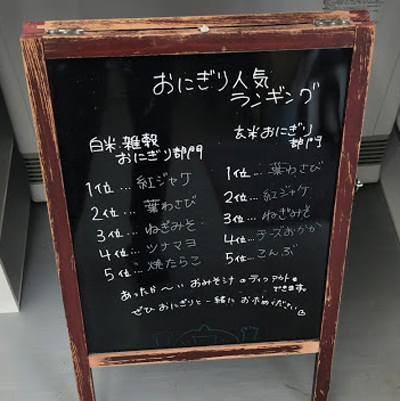 おにぎり人気
ランキング
白米、雑穀
おにぎり部門
1位…紅ジャケ
2位…葉わさび
3位…ねぎみそ
4位…ツナマヨ
5位…焼たらこ
玄米おにぎり
部門
1位…葉わさび
2位…紅ジャケ
3位…ねぎみそ
4位…チーズおかか
5位…こんぶ
あったか〜いおみそ汁のテイクアウトも
できます。
ぜひおにぎりと一緒にお求めください